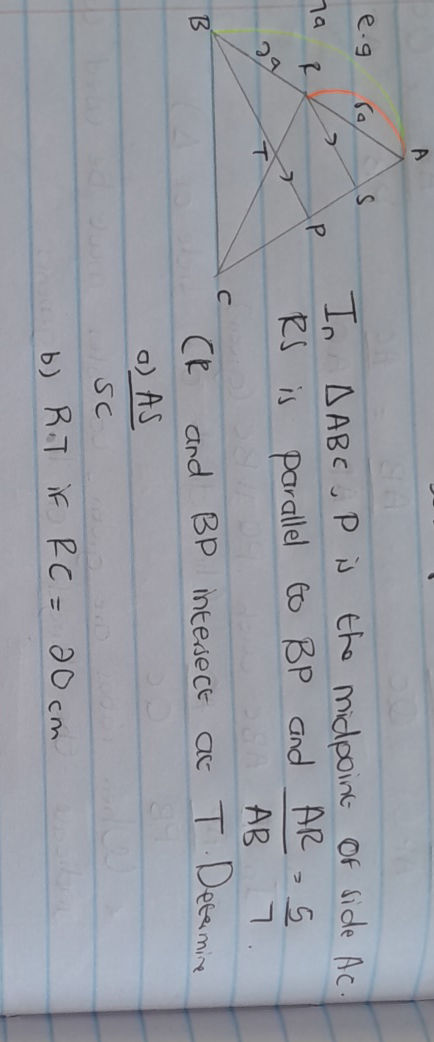 e.g
A
5a
S
R
7a
2a
P
T
B
C
In ΔABC, P is the midpoint of side AC.
RS is parallel to BP and AR/AB = 5/7.
CR and BP intersect at T. Determine
a) AS/SC
b) RT if RC = 20 cm